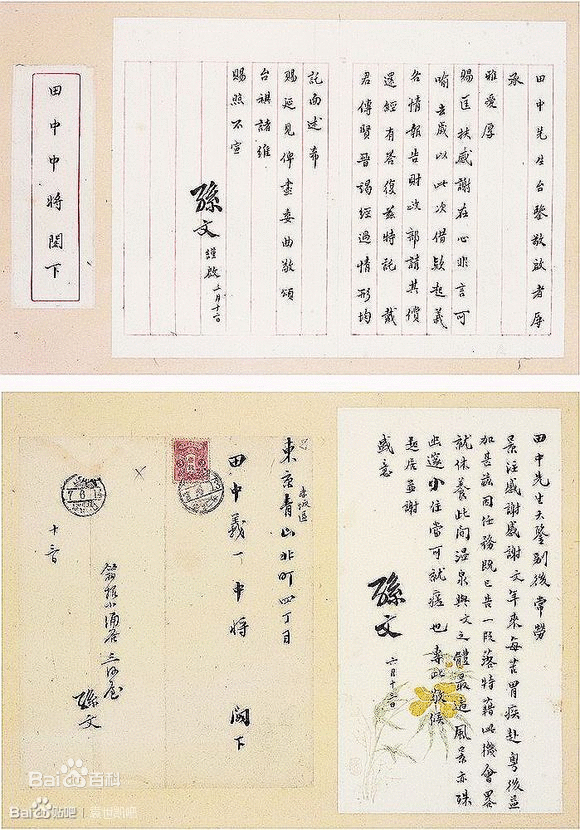 田中先生台鑒敬啟者屢
承
雅愛厚
賜匡扶感謝在心非言可
喻去歲以此次借款起義
各情報告財政部請其償
還經有答復茲特託戴
君傳賢晉謁經過情形均
託面述希
賜延見俾盡委曲敬頌
台祺諸維
賜照不宣
孫文 謹啟
田中中將閣下
田中先生大鑒別後常勞
景注感謝感謝文年來每苦胃疾赴粵後益
加甚茲因任務既已告一段落特藉此機會畧
就休養此間溫泉與文之體最適風景亦殊
幽邃少住當可就瘥也專此敬候
起居並謝
盛意
孫文 六月十二日
赤坂區
東京青山北町四丁目
田中義一中將 閣下
箱根小涌谷三河屋
孫文
Bai百科
Bai贴吧 | 袁世凯吧